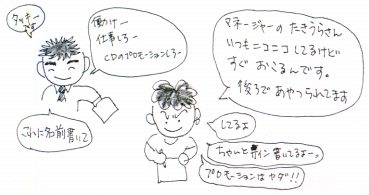 タッキー
です
働けー
仕事しろー
CDのプロモーションしろー
マネージャーの たきうらさん
いつもニコニコ してるけど
すぐ おこるんです。
後ろで あやつられてます
これに名前書いて
してるよ
ちゃんとサイン書いてるよーっ
プロモーションは ヤダ!!